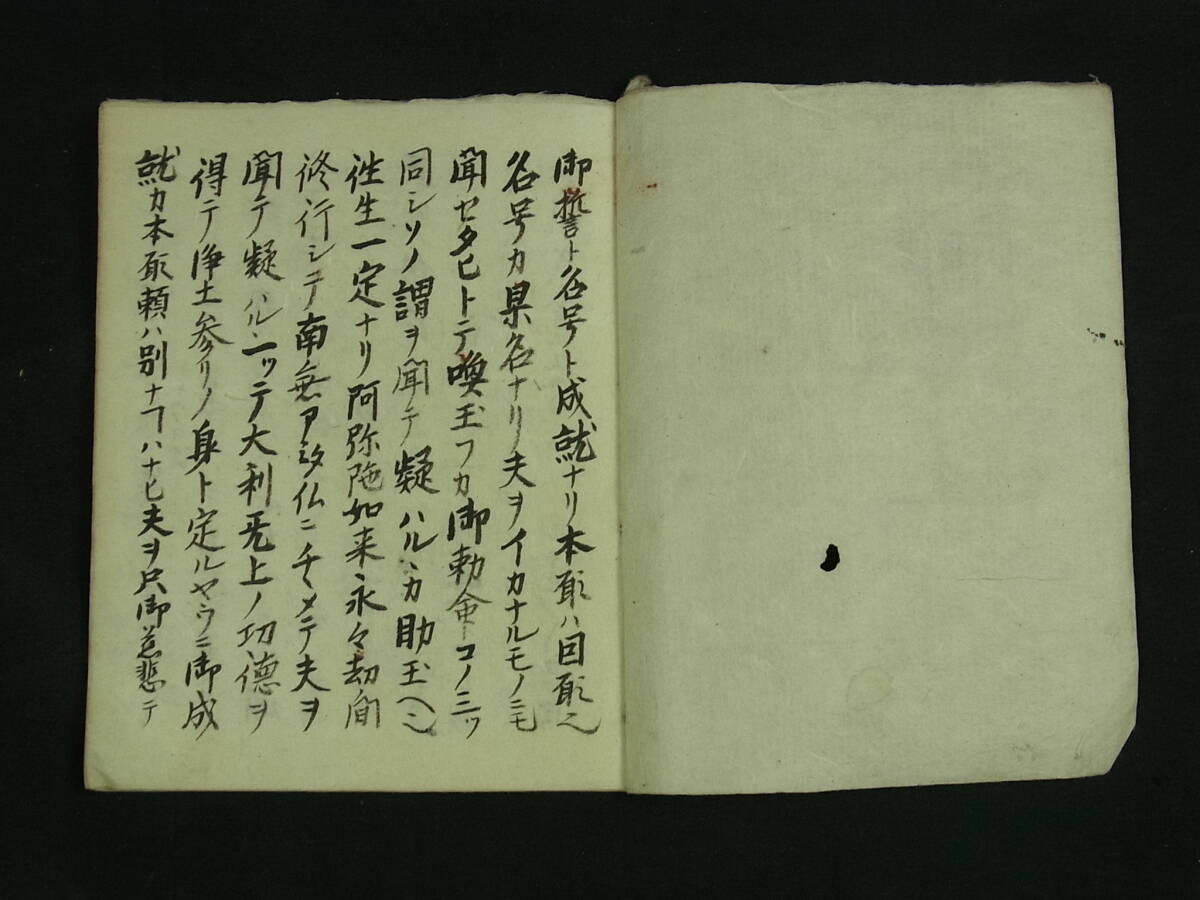 御誓ト名号ト成就ナリ本願ハ因願也
名号カ果名ナリノ夫ヲイカナルモノニモ
聞セタヒトテ喚玉フカ御勅命コノ三ッ
同シソノ謂ヲ聞テ疑ハルヽカ助玉ヘニ
往生一定ナリ阿弥陀如来永々劫間
修行シテ南無アミタ仏ニチヽメテ夫ヲ
聞テ疑ハル一ッテ大利無上ノ功徳ヲ
得テ浄土参リノ身ト定ルヤウニ御成
就カ本願頼ハ別ナヿハナヒ夫ヲ只御慈悲テ